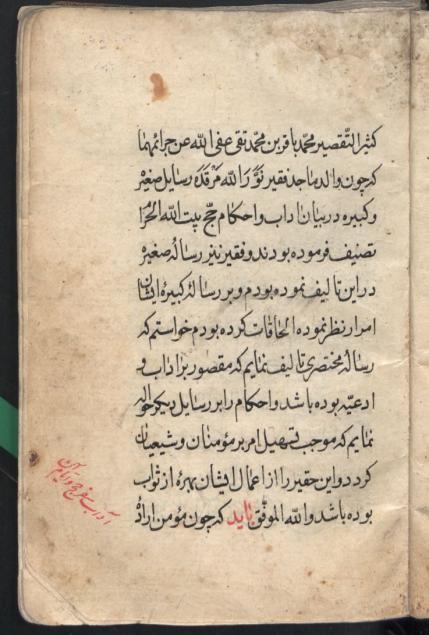 کثیر التّقصیر محمّد باقر بن محمّد تقی عفی اللّه عن جرائمهما
که چون والد ماجد فقیر نوّر اللّه مرقده رسایل صغیره
و کبیره در بیان اداب و احکام حجّ بیت اللّه الحرام
تصنیف فرموده بودند و فقیر نیز رسالۀ صغیره
در این تالیف نموده بودم و بر رسالۀ کبیرۀ ایشان
امرار نظر نموده الحاقات کرده بودم خواستم که
رسالۀ مختصری تالیف نمایم که مقصور بر اداب و
ادعیّه بوده باشد و احکام را بر رسایل دیکر حواله
نمایم که موجب تسهیل امر بر مؤمنان و شیعیان
کردد و این حقیر را از اعمال ایشان بهرۀ از ثواب
بوده باشد و اللّه الموفّق باید که چون مؤمن اراده
آداب سفر حج